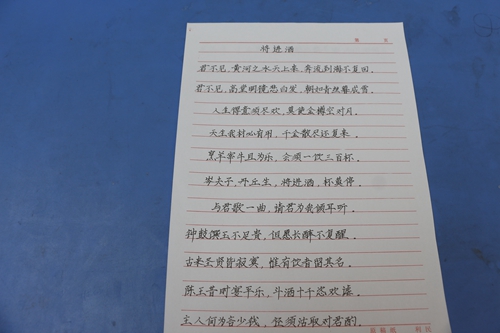 将进酒
君不见,黄河之水天上来,奔流到海不复回。
君不见,高堂明镜悲白发,朝如青丝暮成雪。
人生得意须尽欢,莫使金樽空对月。
天生我材必有用,千金散尽还复来。
烹羊宰牛且为乐,会须一饮三百杯。
岑夫子,丹丘生,将进酒,杯莫停。
与君歌一曲,请君为我倾耳听。
钟鼓馔玉不足贵,但愿长醉不复醒。
古来圣贤皆寂寞,惟有饮者留其名。
陈王昔时宴平乐,斗酒十千恣欢谑。
主人何为言少钱,径须沽取对君酌。